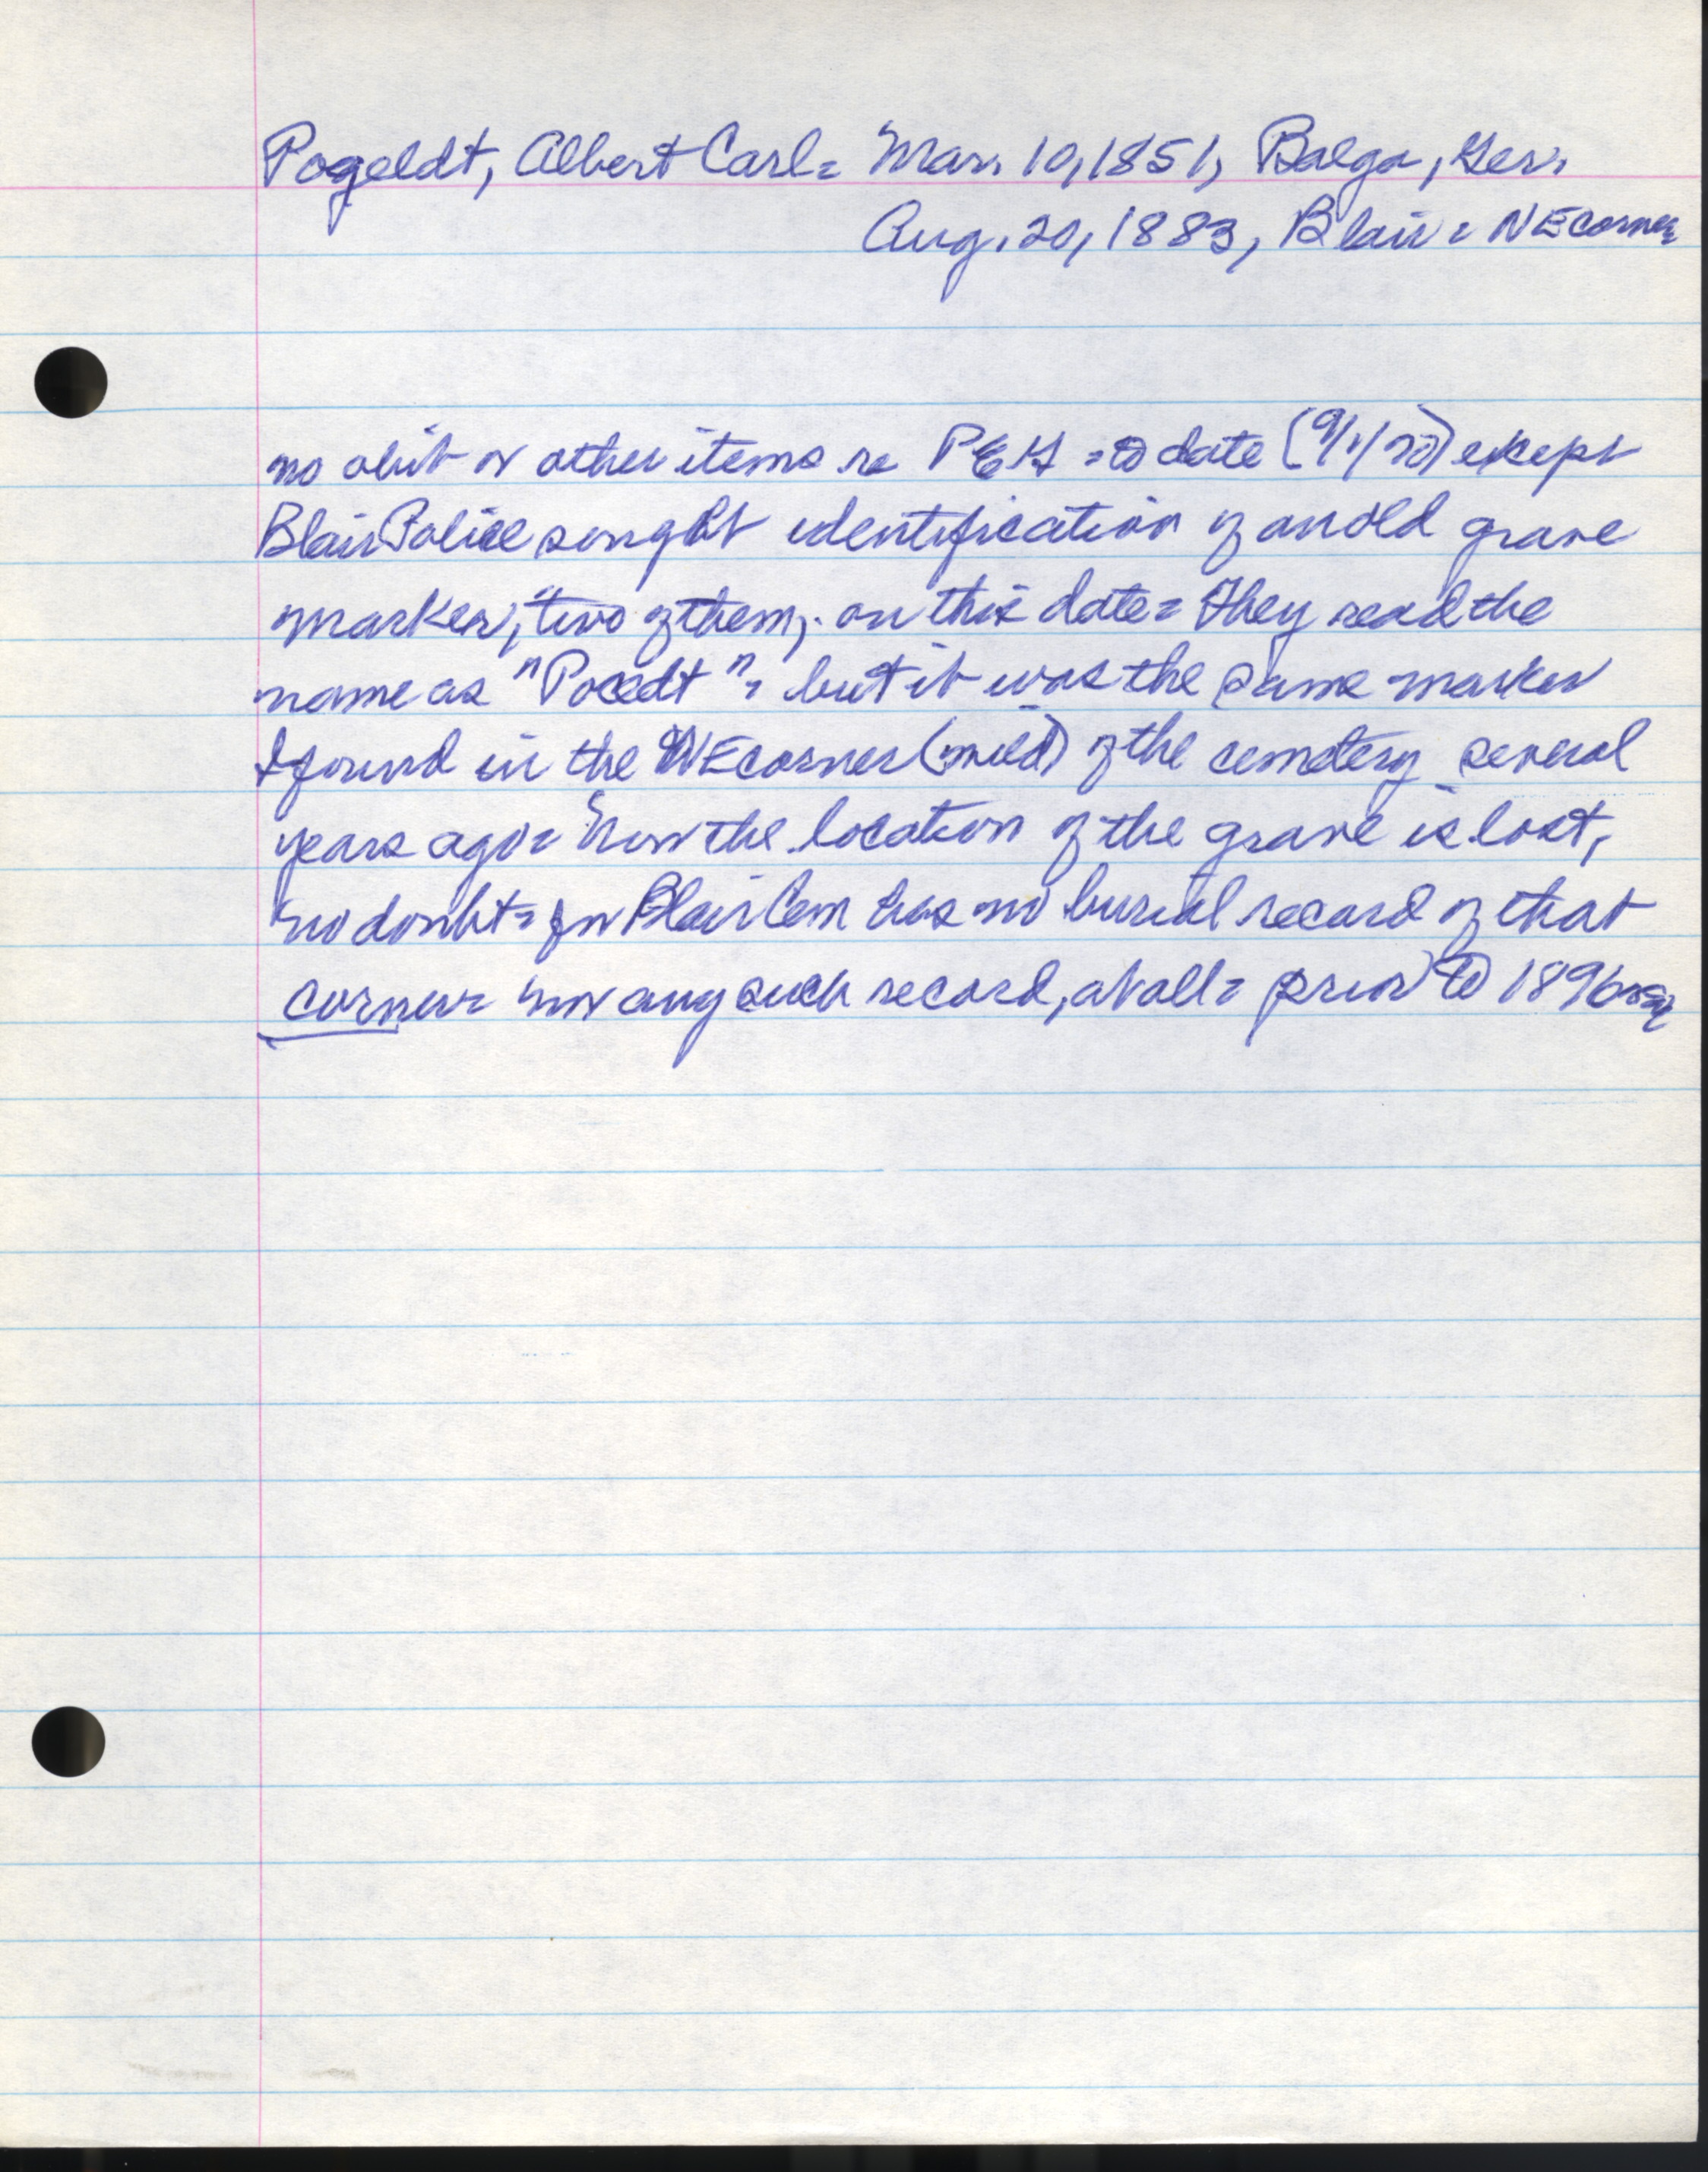 Pogeldt, Albert Carl = Mar. 10, 1851, Balga, Ger.
Aug. 20, 1883, Blair = NE corner
no obit or other items re = to date (9/1/70) except
Blair Police sought identification of an old grave
marker, two of them, on this date = They read the
name as "Pocedt" = but it was the same marker
I found in the NE corner of the cemetery several
years ago = Now the location of the grave is lost,
no doubt = for Blair Cem has no burial record of that
corner = nor any such record, at all = prior to 1896